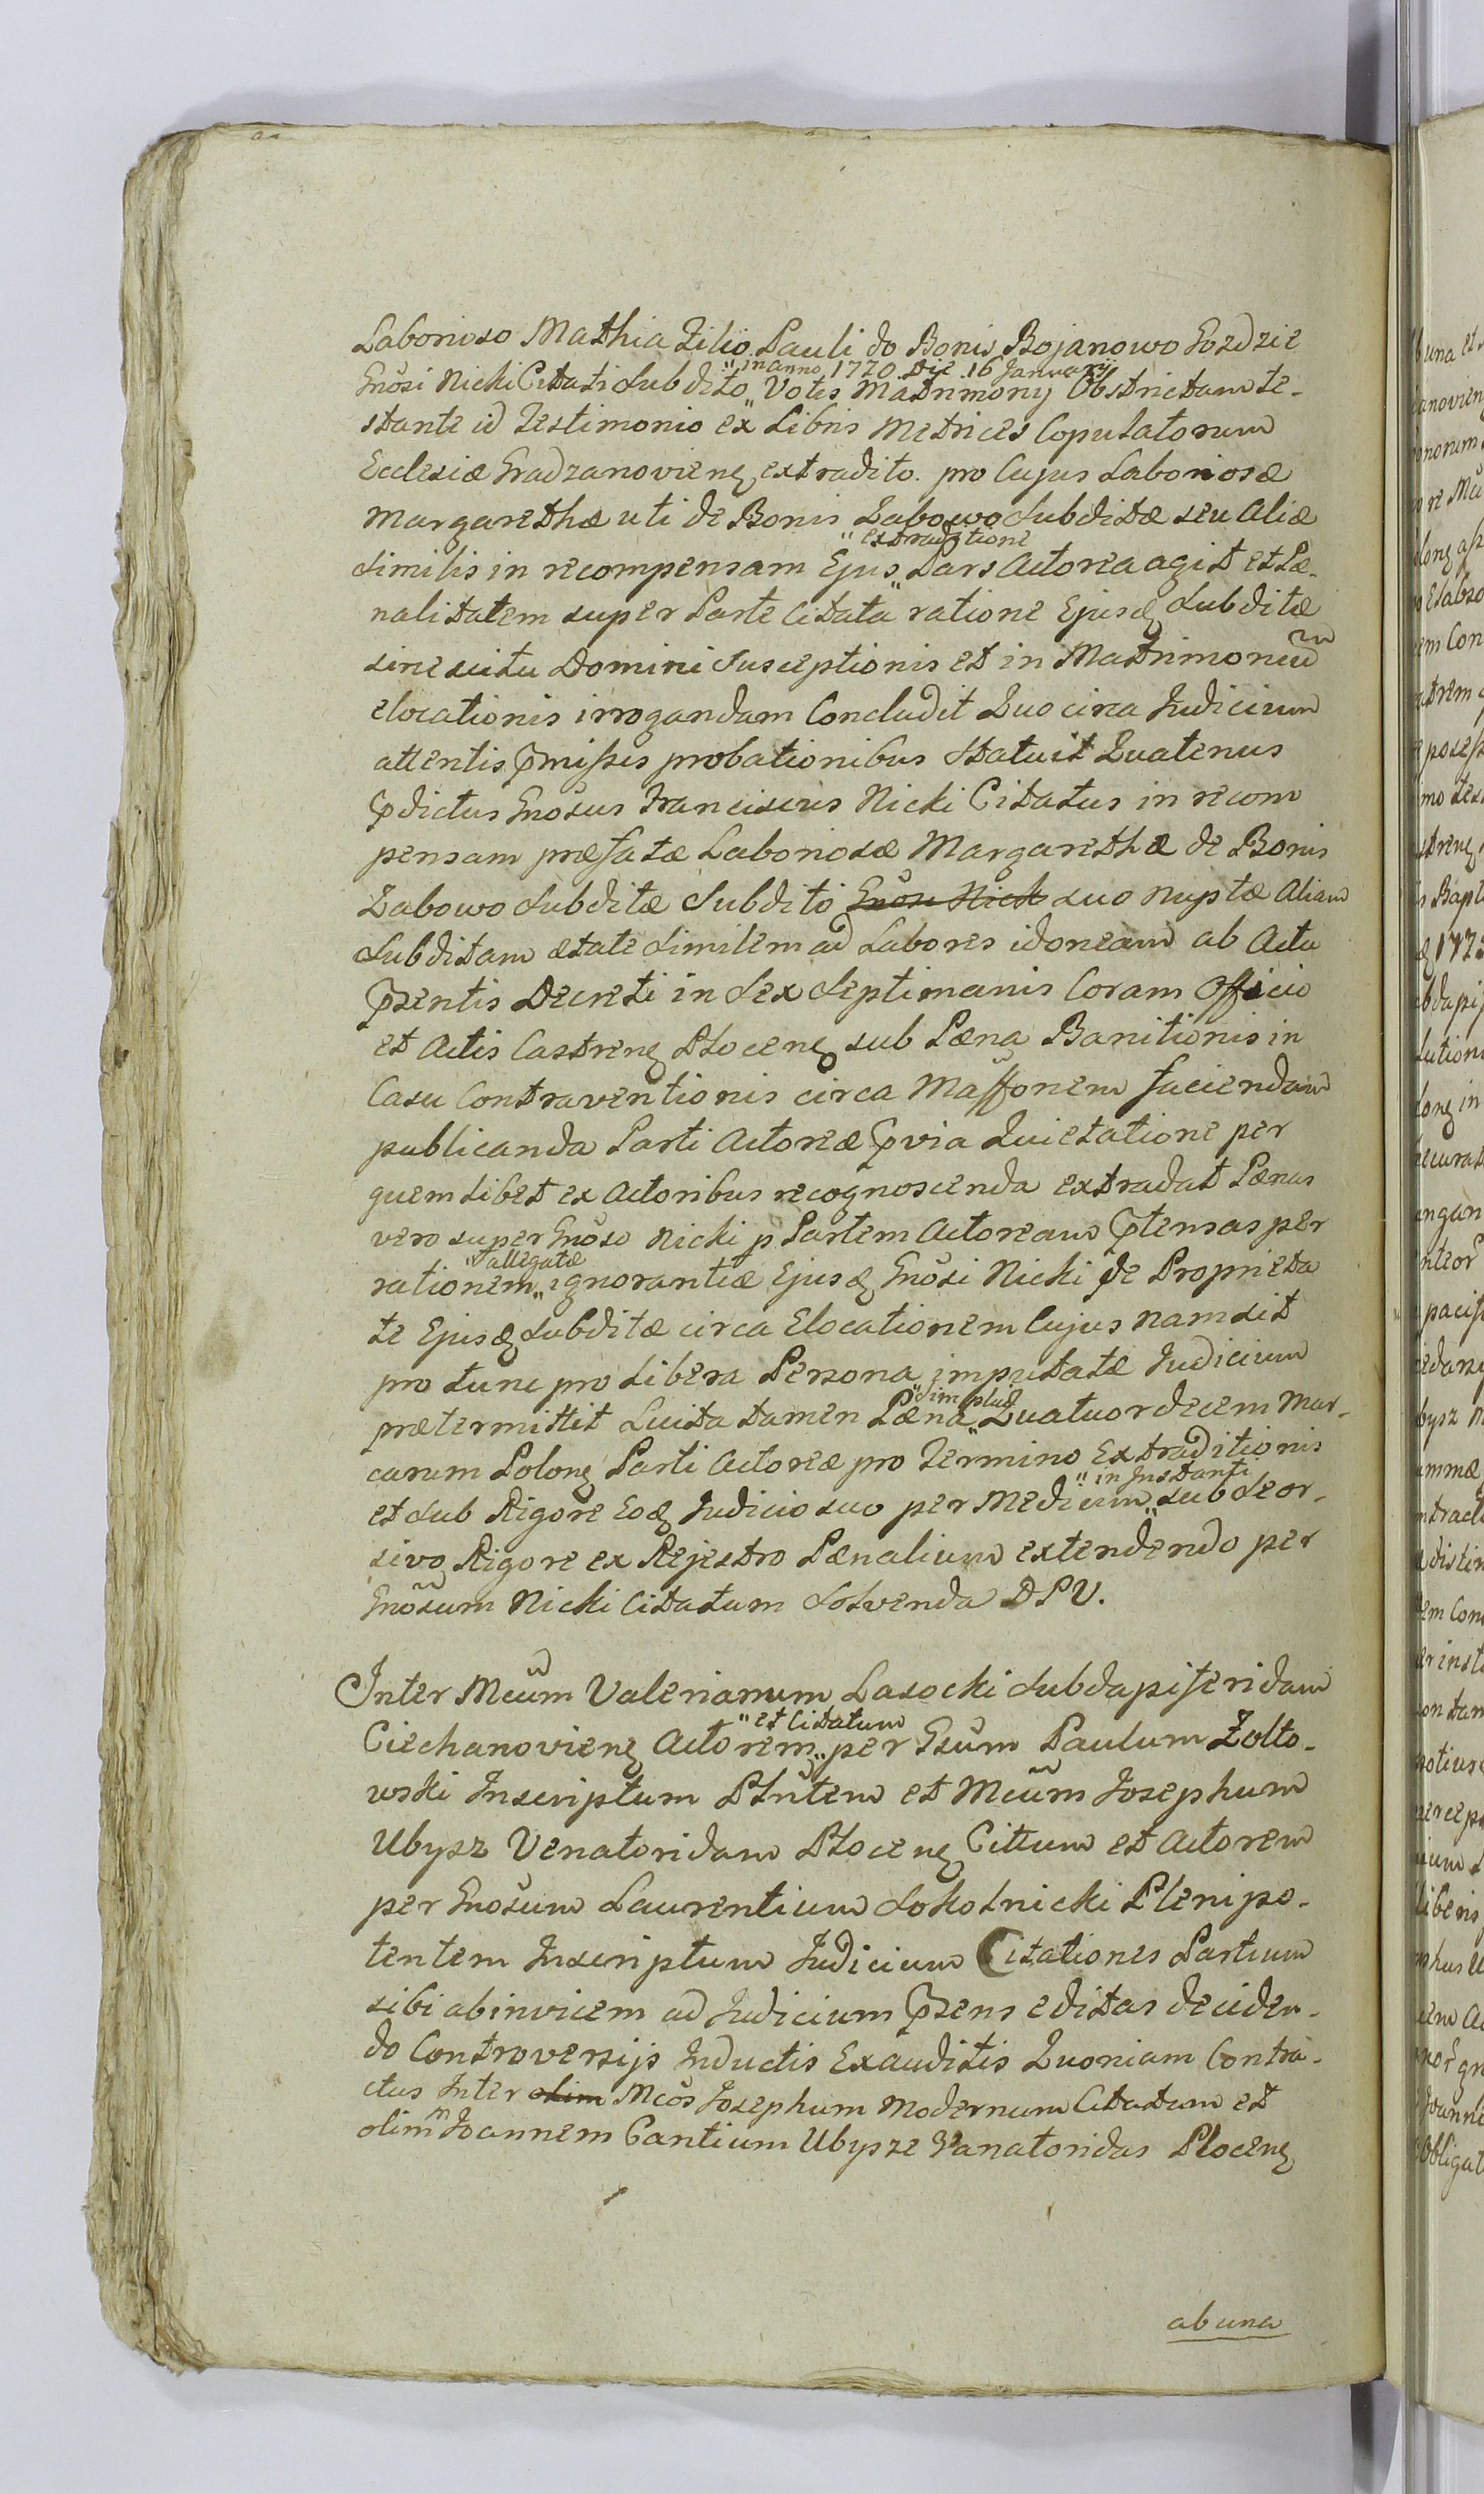 Laborioso Mathia Filio Pauli do Bonis Bojanowo Gozdzie
"in anno 1770 Die 16 Januarij
Gnosi Nicki Citati Subdito" Votis Matrimonij Obstrictam te-
stante id Testimonio ex Libris Metrices Copulatorum
Ecclesiæ Gradzanovien extradito. pro Cujus Laboriosæ
Margarethæ uti de Bonis Zabowo Subditæ seu Aliæ
"extraditione
Similis in recompensam Ejus" Pars Actorea agit et Pæ-
nalitatem super Parte Citata ratione Ejusq Subditæ
sine scitu Domini Susceptionis et in Matrimoniũ
elocationis irrogandam Concludit Quo circa Judicium
attentis pmissis probationibus Statuit Quatenus
pdictus Gnosus Franciscus Nicki Citatus in recom
pensam præfatæ Laboriosæ Margarethæ de Bonis
Zabowo Subditæ Subdito Gnosi Nicki suo nuptæ Aliam
Subditam ætate Similem ad Labores idoneam ab Actu
psentis Decreti in Sex Septimanis Coram Officio
et Actis Castren Plocen sub Pæna Banitionis in
Casu Contraventionis circa Massonem faciendam
publicanda Parti Actoreæ pvia Quietatione per
quemlibet ex Actoribus recognoscenda extradat Pænas
vero super Gnoso Nicki p Partem Actoream ptensas per
"allegatæ
rationem" ignorantiæ Ejusq Gnosi Nicki de Proprieta
te Ejusq Subditæ circa Elocationem Cujus nam sit
pro tunc pro libera Persona imputatæ Judicium
"simplici
prætermittit Luita tamen Pæna" Quatuordecem Mar-
carum Polon Parti Actoreæ pro Termino Extraditionis
"in Instanti
et sub Rigore Eoq Judicio suo per Medium" sub Seor-
sivo Rigore ex Rejestro Pænalium extendendo per
Gnosum Nicki Citatum Solvenda DPV.
Inter Mcum Valerianum Lasocki Subdapiferidam
"et Citatum
Ciechanovien Actorem" per Gsum Paulum Zolto-
wski Inscriptum Pltntem et Mcum Josephum
Ubysz Venatoridam Plocen Cittum et Actorem
per Gnosum Laurentium Sokolnicki Plenipo-
tentem Inscriptum Judicium Citationes Partium
sibi ab invicem ad Judicium psens editas deciden-
do Controversijs Inductis Exauditis Quoniam Contra-
ctus Inter olim Mcos Josephum Modernum Citatum et
olim Joannem Cantium Ubysze Vanatoridas Plocen
ab una